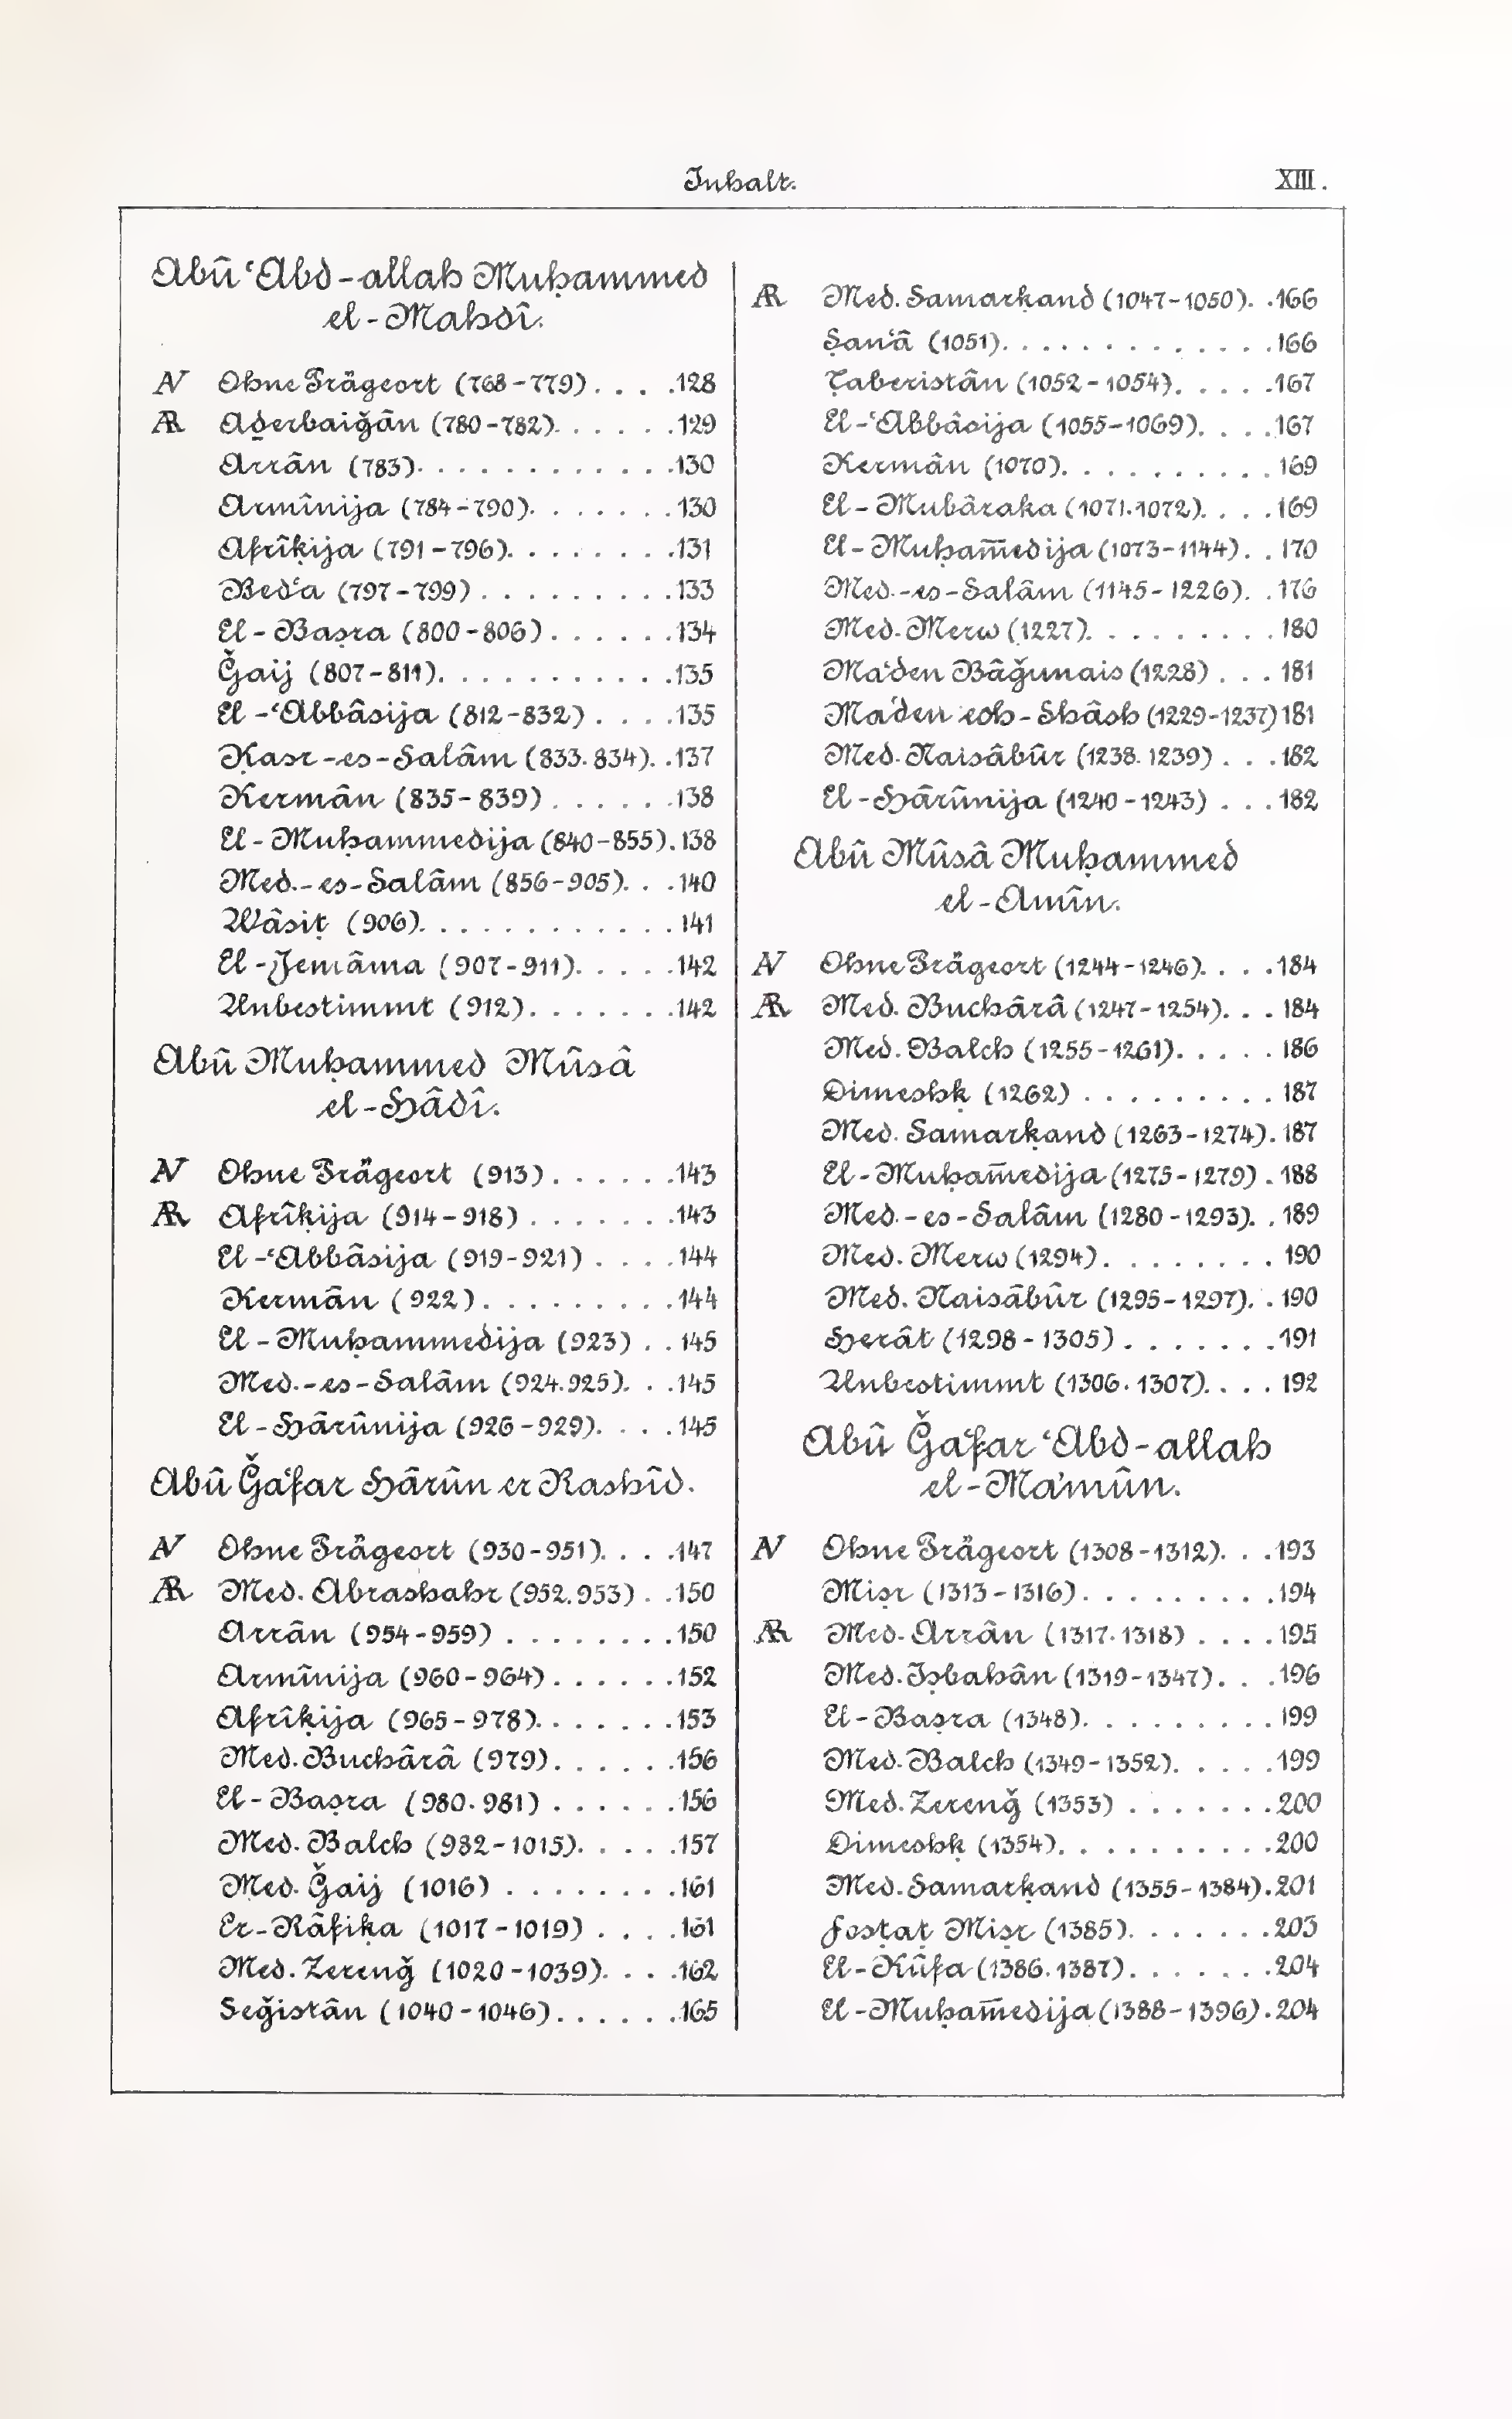 Inhalt.
XIII.
Abû ʿAbd-allah Muḥammed
el-Mahdî.
AV Ohne Prägeort (768-779). . . .128
AR Aḏerbaiǧân (780-782). . . . . .129
Arrân (783). . . . . . . . . . . .130
Armînija (784-790). . . . . . .130
Afrîḳija (791-796). . . . . . . .131
Bedʿa (797-799) . . . . . . . . .133
El-Baṣra (800-806) . . . . . .134
Ǧaij (807-811). . . . . . . . . . .135
El-ʿAbbâsija (812-832) . . . .135
Ḳaṣr-es-Salâm (833.834). .137
Kermân (835-839) . . . . . .138
El-Muḥammedija (840-855).138
Med.-es-Salâm (856-905). . .140
Wâsiṭ (906). . . . . . . . . . . .141
El-Jemâma (907-911). . . . .142
Unbestimmt (912). . . . . . .142
Abû Muḥammed Mûsâ
el-Hâdî.
AV Ohne Prägeort (913) . . . . . .143
AR Afrîḳija (914-918) . . . . . . .143
El-ʿAbbâsija (919-921) . . . .144
Kermân (922). . . . . . . . . .144
El-Muḥammedija (923) . . 145
Med.-es-Salâm (924.925). . .145
El-Hârûnija (926-929). . . .145
Abû Ǧaʿfar Hârûn er Rashîd.
AV Ohne Prägeort (930-951). . . .147
AR Med. Abrashahr (952.953) . .150
Arrân (954-959) . . . . . . . .150
Armînija (960-964) . . . . . .152
Afrîḳija (965-978). . . . . . .153
Med. Buchârâ (979). . . . . .156
El-Baṣra (980.981) . . . . . .156
Med. Balch (982-1015). . . . .157
Med. Ǧaij (1016) . . . . . . . .161
Er-Râfiḳa (1017-1019) . . . .161
Med. Zerenǧ (1020-1039). . . .162
Seǧistân (1040-1046). . . . . .165
AR Med. Samarḳand (1047-1050). .166
Ṣanʿâ (1051). . . . . . . . . . . . .166
Ṭaberistân (1052-1054). . . . .167
El-ʿAbbâsija (1055-1069). . . .167
Kermân (1070). . . . . . . . . . 169
El-Mubâraka (1071.1072). . . .169
El-Muḥam̅edija (1073-1144). . 170
Med.-es-Salâm (1145-1226). .176
Med. Merw (1227). . . . . . . . 180
Maʿden Bâǧunais (1228) . . . 181
Maʿden esh-Shâsh (1229-1237)181
Med. Naisâbûr (1238.1239) . . .182
El-Hârûnija (1240-1243) . . .182
Abû Mûsâ Muḥammed
el-Amîn.
AV Ohne Prägeort (1244-1246). . . .184
AR Med. Buchârâ (1247-1254). . . 184
Med. Balch (1255-1261). . . . . 186
Dimeshḳ (1262) . . . . . . . . . 187
Med. Samarḳand (1263-1274). 187
El-Muḥam̅edija (1275-1279) . 188
Med.-es-Salâm (1280-1293). . 189
Med. Merw (1294). . . . . . . . 190
Med. Naisâbûr (1295-1297). . 190
Herât (1298-1305) . . . . . . .191
Unbestimmt (1306.1307). . . . 192
Abû Ǧaʿfar ʿAbd-allah
el-Maʾmûn.
AV Ohne Prägeort (1308-1312). . .193
Miṣr (1313-1316). . . . . . . . .194
AR Med. Arrân (1317.1318) . . . .195
Med. Iṣbahân (1319-1347). . .196
El-Baṣra (1348). . . . . . . . . 199
Med. Balch (1349-1352). . . . .199
Med. Zerenǧ (1353) . . . . . . .200
Dimeshḳ (1354). . . . . . . . . .200
Med. Samarḳand (1355-1384).201
Fosṭaṭ Miṣr (1385). . . . . . .203
El-Kûfa (1386.1387). . . . . . .204
El-Muḥam̅edija (1388-1396).204